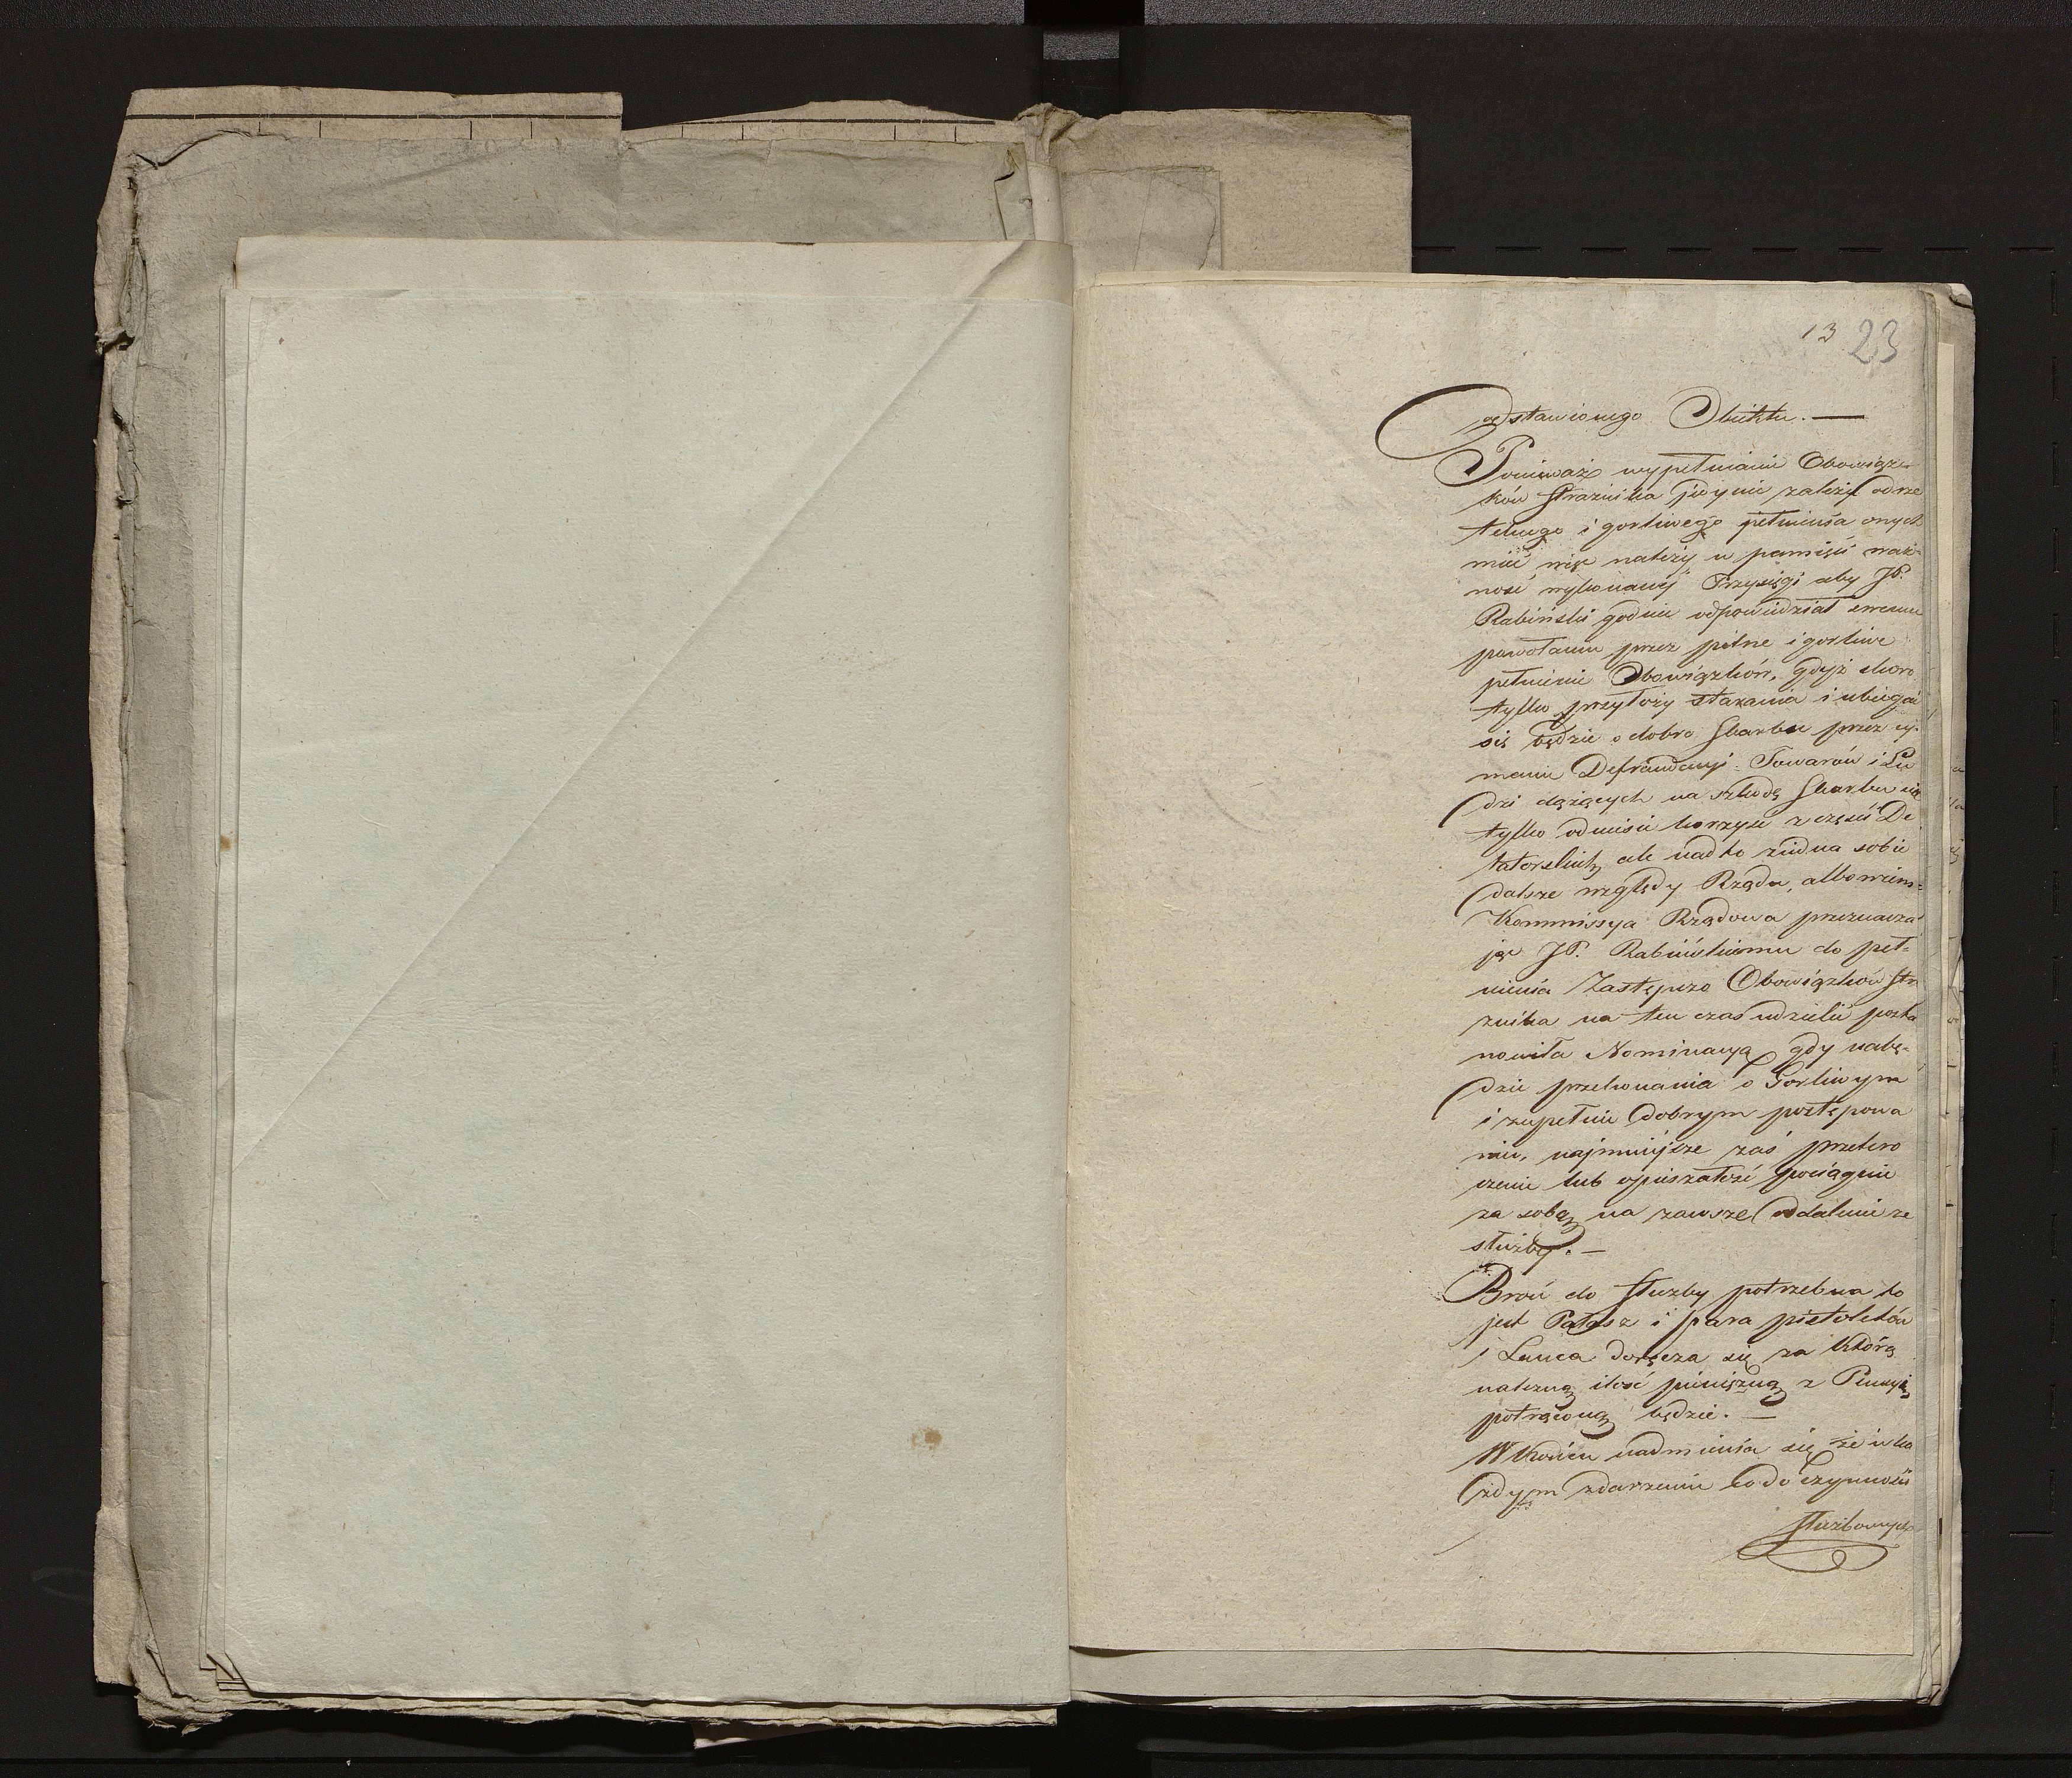 13 23
odstawionego Obiektu. —
Ponieważ wypełnianie Obowiąz-
ków Strażnika jedynie zależy od rze
telnego i gorliwego pełnienia onych
mieć więc należy w pamięci waż-
ność wykonanej Przysięgi aby JP.
Rabiński godnie odpowiedział swemu
powołaniu przez pilne i gorliwe
pełnienie Obowiązków, gdyż skoro
tylko przyłoży starania i ubiegać
się będzie o dobro Skarbu przez uj-
manie Defraudacyi Towarów i Lu
dzi dążących na szkodę Skarbu nie
tylko odniesie korzyść z części De
latorskich, ale nadto zjedna sobie
dalsze względy Rządu, albowiem
Kommissya Rządowa przeznacza-
jąc JP. Rabińskiemu do peł-
nienia Zastępczo Obowiązków Stra
żnika na ten czas udzielić posta
nowiła Nominacyą gdy nabę-
dzie przekonania o Gorliwym
i zupełnie dobrym postępowa
niu, najmniejsze zaś przekro
czenie lub opieszałość pociągnie
za sobą na zawsze oddalenie ze
służby. —
Broń do Służby potrzebna to
jest Pałasz i para pistoletów
i Lanca doręcza się za którą
należną ilość pieniężną z Pensyi
potrąconą będzie. —
W końcu nadmienia się że w ka
żdym zdarzeniu co do czynności
służbowych